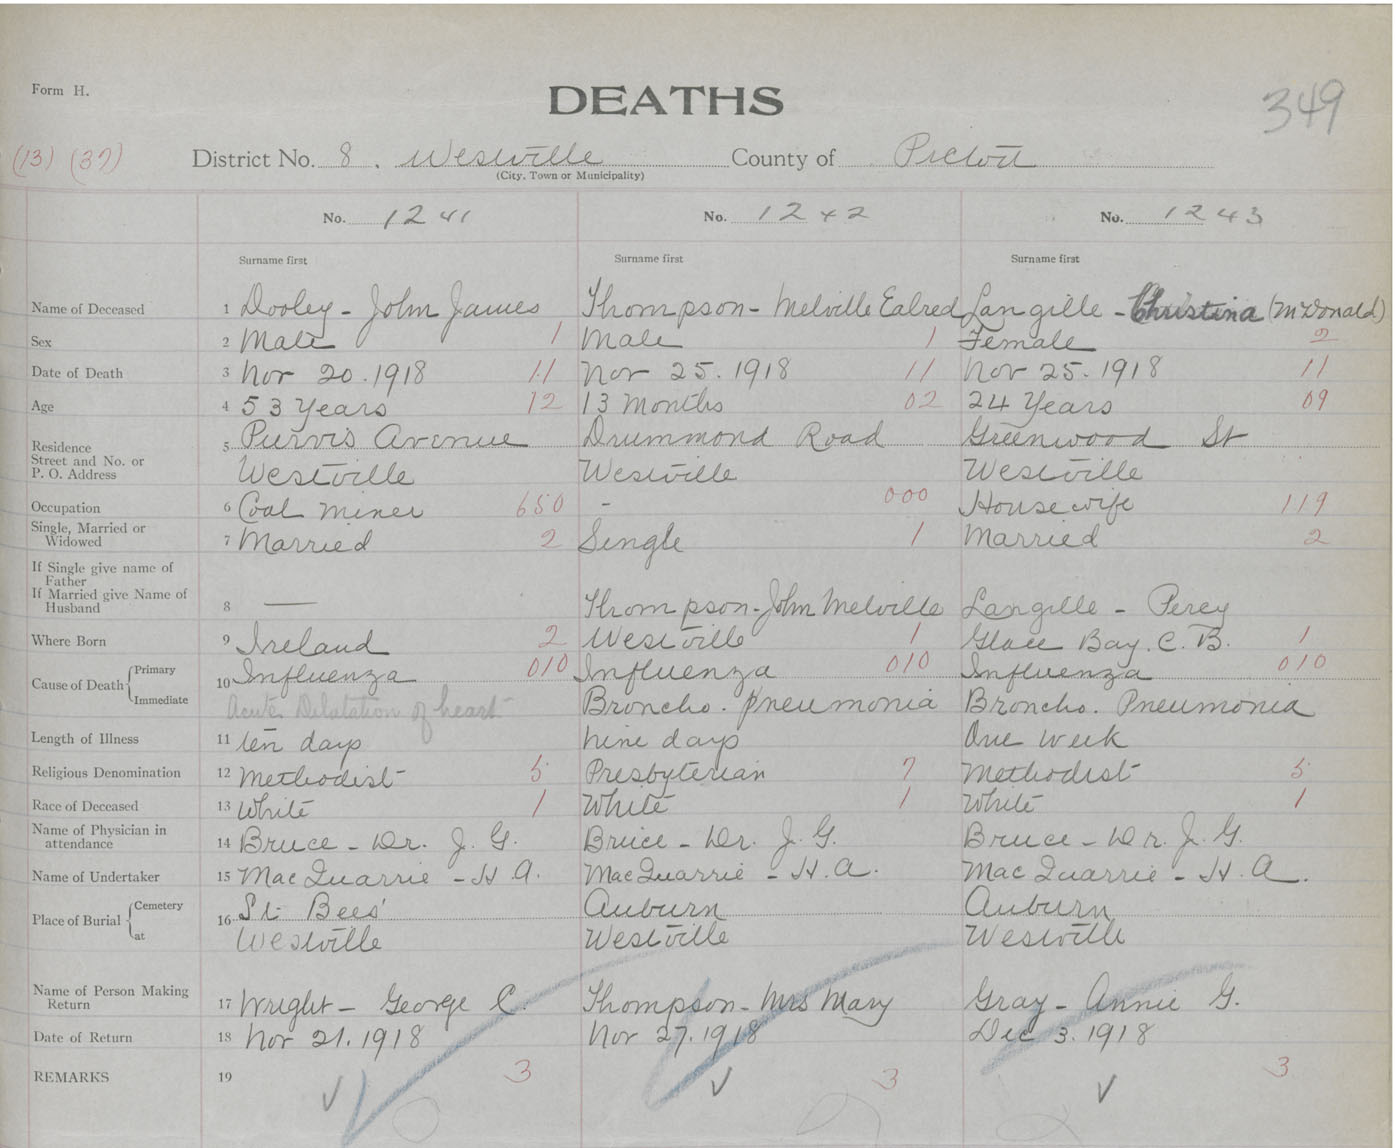 Form H.
DEATHS
349
(13) (37)
District No. 8. Westville County of Pictou
(City, Town or Municipality)
No. 1241 No. 1242 No. 1243
Surname first Surname first Surname first
Name of Deceased 1 Dooley - John James Thompson - Melville Ealred Langille - Christina (McDonald)
Sex 2 Male 1 Male 1 Female 2
Date of Death 3 Nov 20. 1918 11 Nov 25. 1918 11 Nov 25. 1918 11
Age 4 53 Years 12 13 Months 02 24 Years 09
Residence 5 Purvis Avenue Drummond Road Greenwood St
Street and No. or
P. O. Address Westville Westville Westville
Occupation 6 Coal Miner 650 - 000 Housewife 119
Single, Married or
Widowed 7 Married 2 Single 1 Married 2
If Single give name of
Father
If Married give Name of
Husband 8 — Thompson - John Melville Langille - Percy
Where Born 9 Ireland 2 Westville 1 Glace Bay. C. B. 1
Cause of Death Primary 10 Influenza 010 Influenza 010 Influenza 010
Immediate Acute Dilatation of heart Broncho. Pneumonia Broncho. Pneumonia
Length of Illness 11 ten days nine days One week
Religious Denomination 12 Methodist 5 Presbyterian 7 Methodist 5
Race of Deceased 13 White 1 White 1 White 1
Name of Physician in
attendance 14 Bruce - Dr. J. G. Bruce - Dr. J. G. Bruce - Dr. J. G.
Name of Undertaker 15 MacQuarrie - H. A. MacQuarrie - H. A. MacQuarrie - H. A.
Place of Burial Cemetery 16 St. Bees' Auburn Auburn
at Westville Westville Westville
Name of Person Making
Return 17 Wright - George C. Thompson - Mrs Mary Gray - Annie G.
Date of Return 18 Nov 21. 1918 Nov 27. 1918 Dec 3. 1918
REMARKS 19 3 3 3